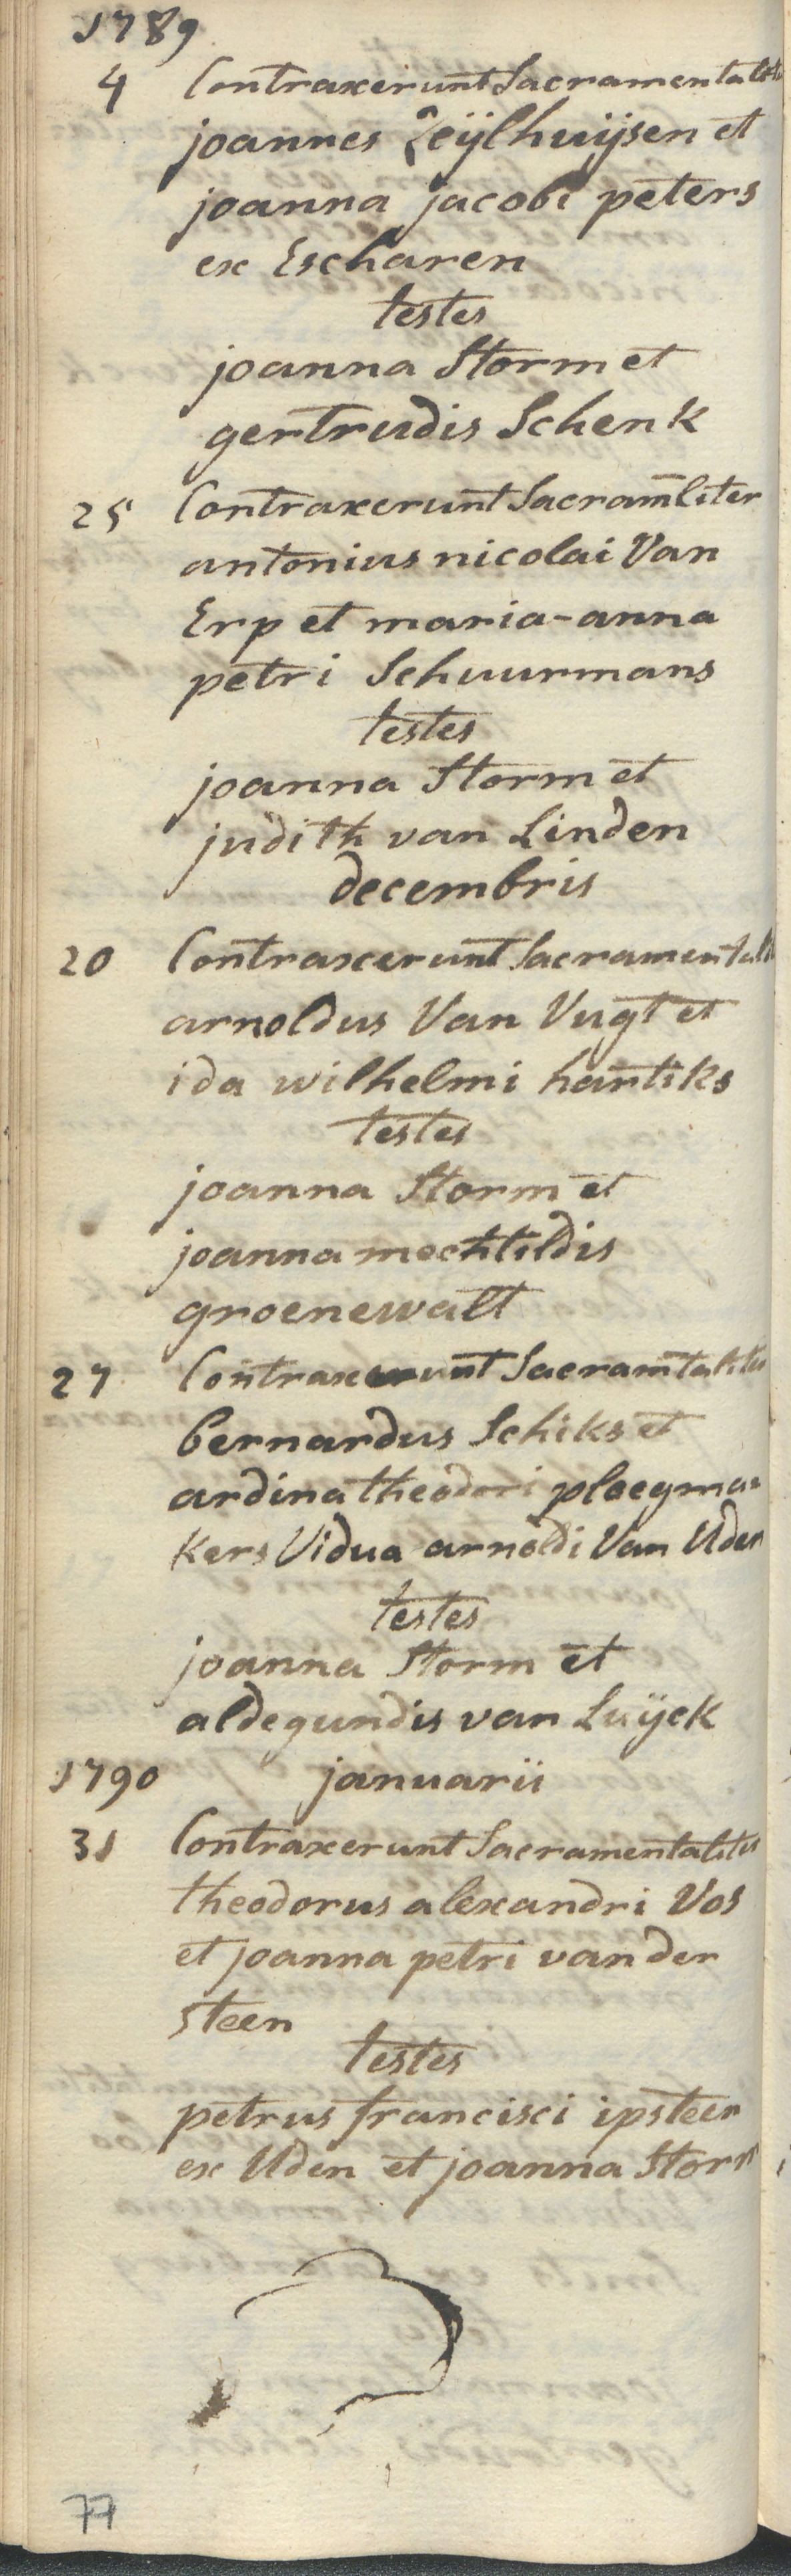 1789
4 Contraxerunt Sacramentalit
joannes Zeijlhuijsen et
joanna jacobi peters
ex Escharen
testes
joanna Storm et
gertrudis Schenk
25 Contraxerunt Sacram̄liter
antonius nicolai Van
Erp et maria-anna
petri Schuurmans
testes
joanna Storm et
judith van Linden
decembris
20 Contraxerunt Sacramentalit
arnoldus Van Vugt et
ida wilhelmi hantiks
testes
joanna Storm et
joanna mechtildis
groenewalt
27 Contraxerunt Sacram̄taliter
bernardus Schiks et
ardina theodori ploegma=
kers Vidua arnoldi Van Uden
testes
joanna Storm et
aldegundis van Luijck
1790 januarii
31 Contraxerunt Sacramentaliter
theodorus alexandri Vos
et joanna petri van der
steen
testes
petrus francisci ipsteen
ex Uden et joanna Storm
77